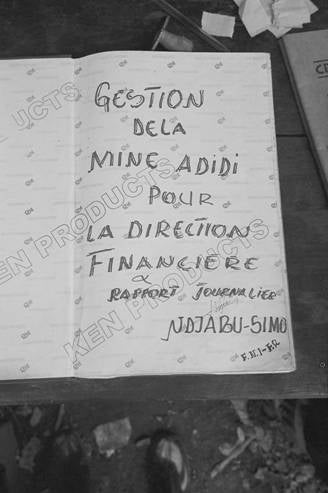 GESTION
DE LA
MINE ADIDI
POUR
LA DIRECTION
FINANCIERE
&
RAPPORT JOURNALIER
NDJABU-SIMO
F.N.I-F.R
KEN PRODUCTS
KEN PRODUCTS
UCTS